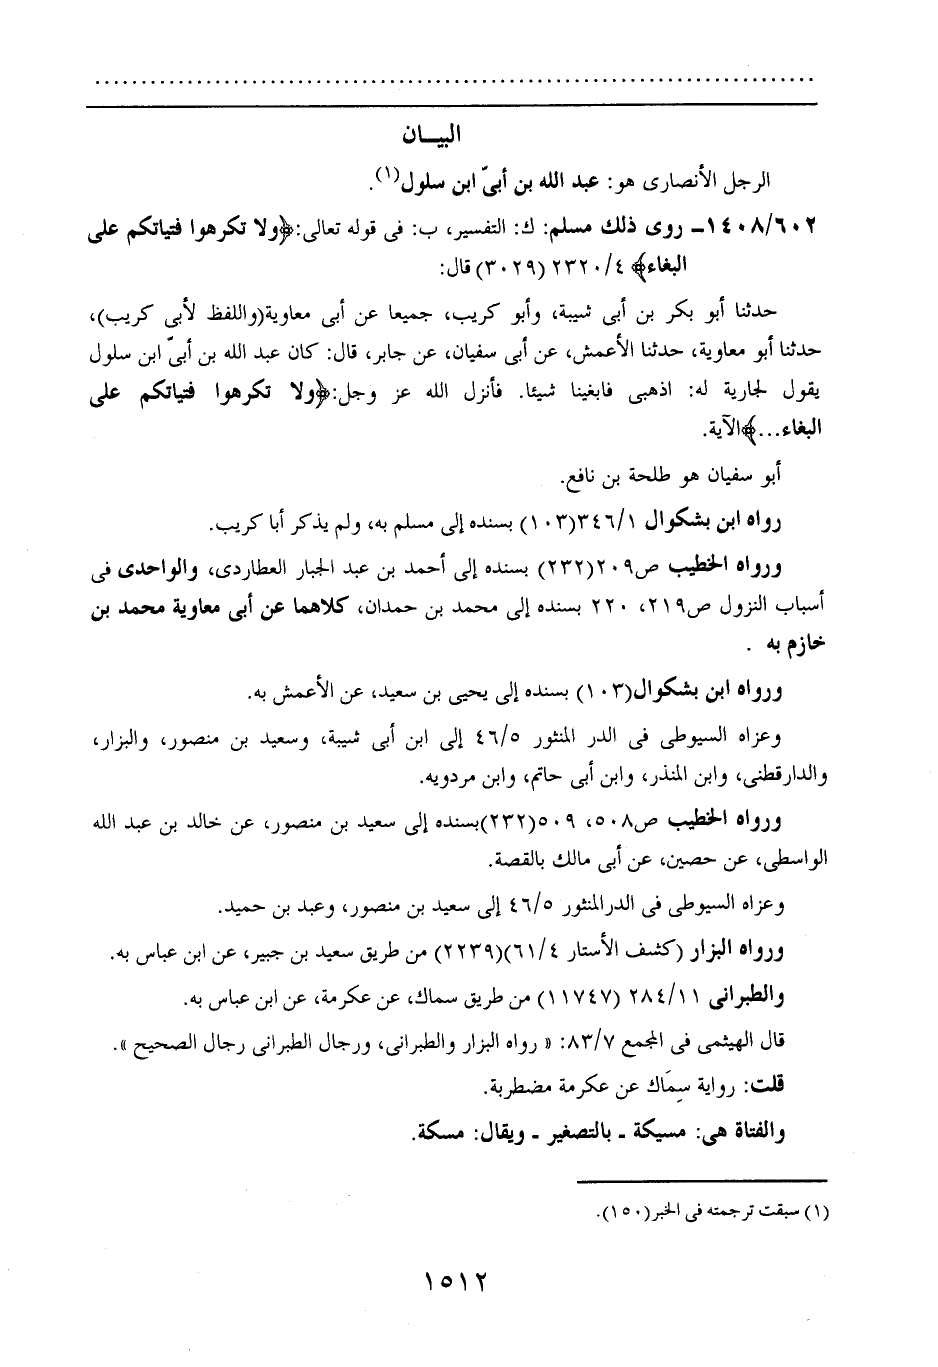 البيـان
الرجل الأنصارى هو: عبد الله بن أبىّ ابن سلول(١).
١٤٠٨/٦٠٢ـ روى ذلك مسلم: ك: التفسير، ب: فى قوله تعالى:﴿ولا تكرهوا فتياتكم على
البغاء﴾ ٢٣٢٠/٤ (٣٠٢٩) قال:
حدثنا أبو بكر بن أبى شيبة، وأبو كريب، جميعا عن أبى معاوية(واللفظ لأبى كريب)،
حدثنا أبو معاوية، حدثنا الأعمش، عن أبى سفيان، عن جابر، قال: كان عبد الله بن أبىّ ابن سلول
يقول لجارية له: اذهبى فابغينا شيئا. فأنزل الله عز وجل:﴿ولا تكرهوا فتياتكم على
البغاء...﴾الآية.
أبو سفيان هو طلحة بن نافع.
رواه ابن بشكوال ٣٤٦/١(١٠٣) بسنده إلى مسلم به، ولم يذكر أبا كريب.
ورواه الخطيب ص٢٠٩(٢٣٢) بسنده إلى أحمد بن عبد الجبار العطاردى، والواحدى فى
أسباب النزول ص٢١٩، ٢٢٠ بسنده إلى محمد بن حمدان، كلاهما عن أبى معاوية محمد بن
خازم به .
ورواه ابن بشكوال(١٠٣) بسنده إلى يحيى بن سعيد، عن الأعمش به.
وعزاه السيوطى فى الدر المنثور ٤٦/٥ إلى ابن أبى شيبة، وسعيد بن منصور، والبزار،
والدارقطنى، وابن المنذر، وابن أبى حاتم، وابن مردويه.
ورواه الخطيب ص٥٠٨، ٥٠٩(٢٣٢)بسنده إلى سعيد بن منصور، عن خالد بن عبد الله
الواسطى، عن حصين، عن أبى مالك بالقصة.
وعزاه السيوطى فى الدرالمنثور ٤٦/٥ إلى سعيد بن منصور، وعبد بن حميد.
ورواه البزار (كشف الأستار ٦١/٤)(٢٢٣٩) من طريق سعيد بن جبير، عن ابن عباس به.
والطبرانى ٢٨٤/١١ (١١٧٤٧) من طريق سماك، عن عكرمة، عن ابن عباس به.
قال الهيثمى فى المجمع ٨٣/٧: « رواه البزار والطبرانى، ورجال الطبرانى رجال الصحيح ».
قلت: رواية سِمَاك عن عكرمة مضطربة.
والفتاة هى: مسيكة ـ بالتصغير ـ ويقال: مسكة.
(١) سبقت ترجمته فى الخبر(١٥٠).
١٥١٢